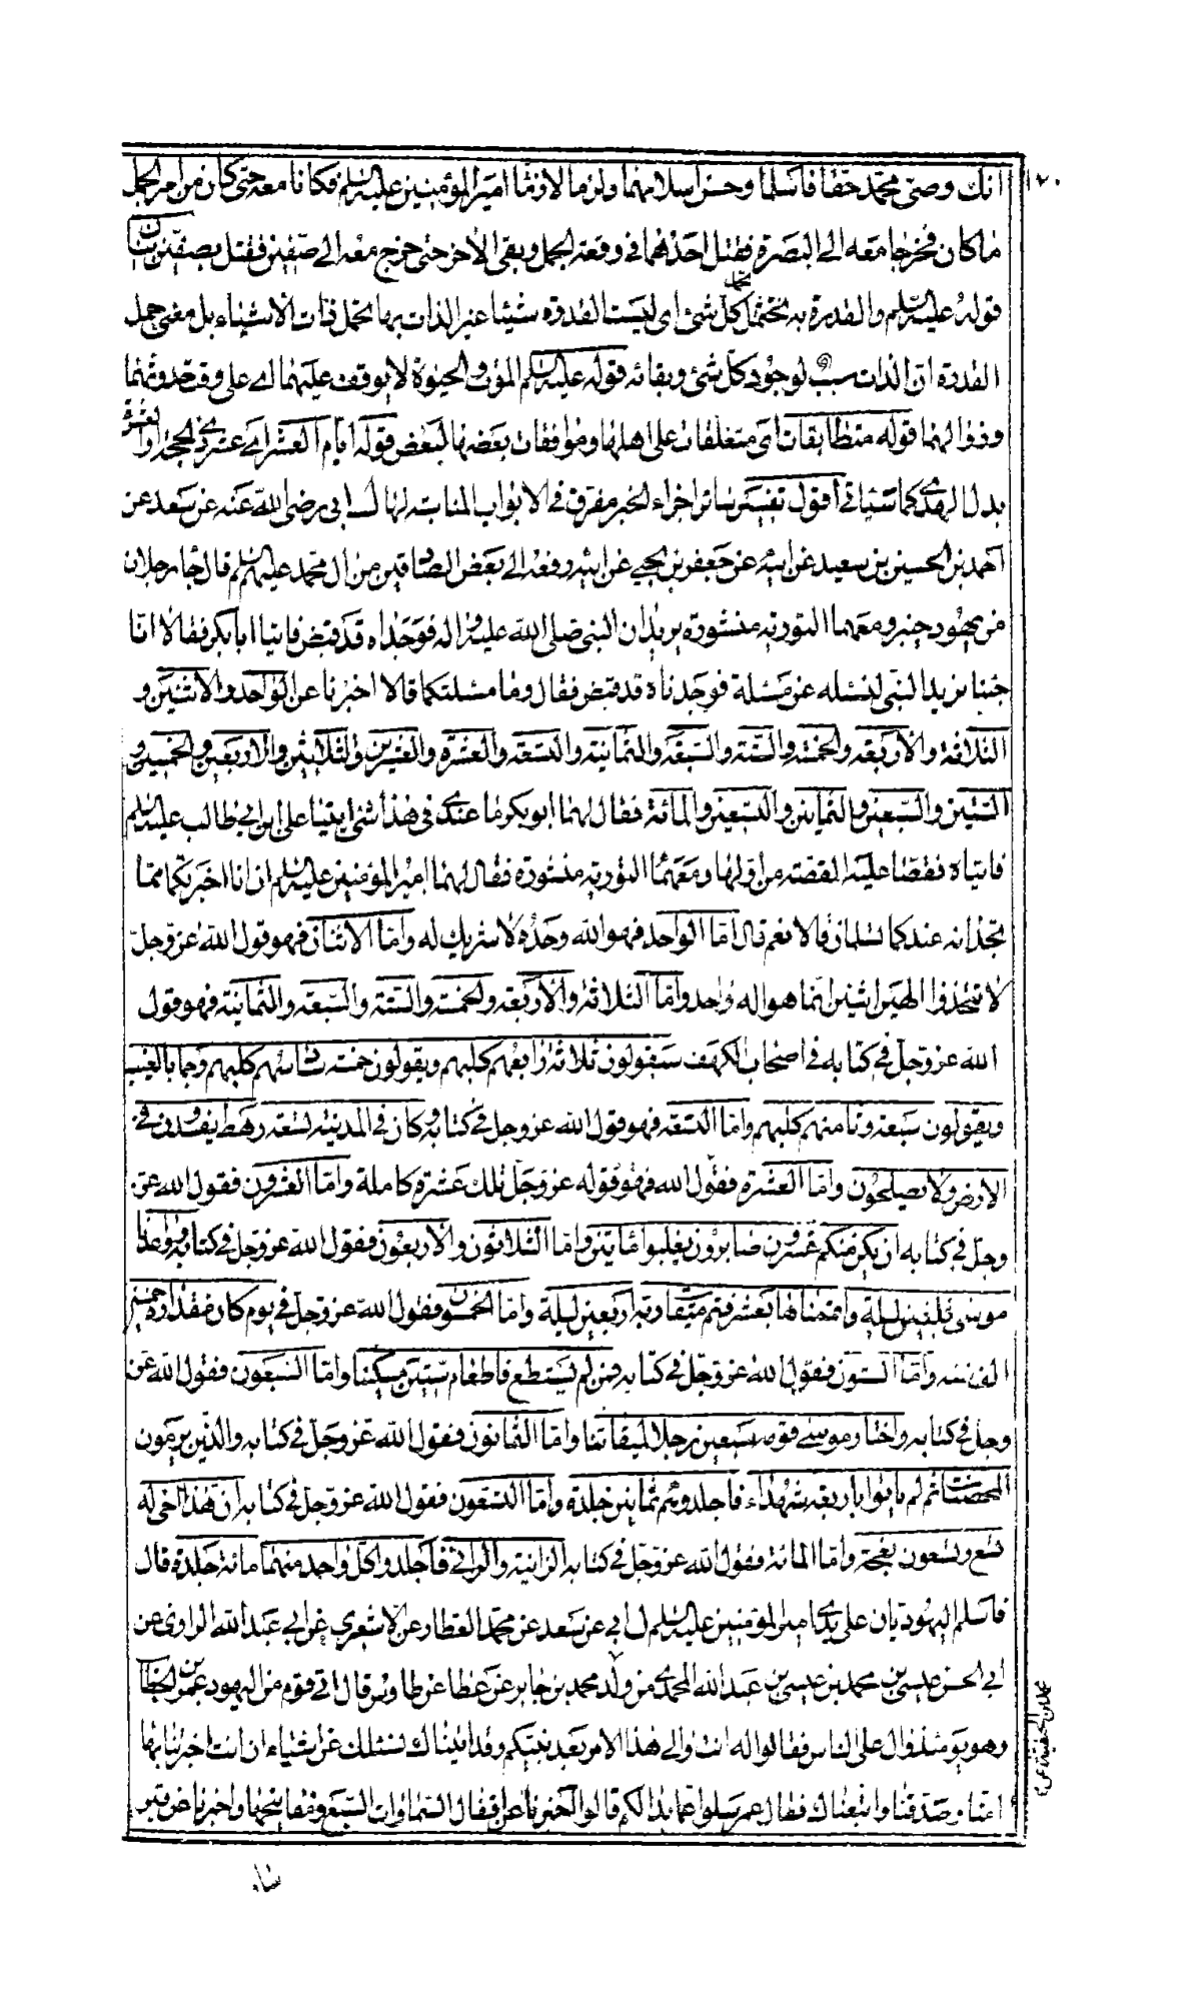 ١٢٠
انك وصىّ محمّد حقا فاسلما وحسن اسلامهما ولزما لازما امير المؤمنين عليه السلم فكانا معه حتى كان من امر الجمل
ما كان فخرجا معه الى البصرة فقتل احدهما فى وقعة الجمل وبقى الاخر حتى خرج معه الى صفين فقتل بصفين بيان
قوله عليه السلم والقدرة به تحتمل كل شئ اى ليست القدرة شيئا غير الذات بها تحمل ذات الاشياء بل معنى حمل
القدرة ان الذات سبب لوجود كل شئ وبقائه قوله عليه السلم الموت والحيوة لا يوقف عليهما اى على وقت حدوثهما
وزوالهما قوله متطابقات اى متعلقات على اهلها وموافقات بعضها لبعض قوله ايام العشر اى عشر ذى الحجة او
بدل الهدى كما سيأتى اقول تفسير سائر اجزاء الخبر مفرق فى الابواب المناسبة لها ل ابى رضى الله عنه عن سعد عن
احمد بن الحسين بن سعيد عن ابيه عن جعفر بن يحيى عن ابيه رفعه الى بعض الصادقين من ال محمد عليهم السلم قال جاء رجلان
من يهود خيبر ومعهما التورية منشورة يريدان النبى صلى الله عليه واله فوجداه قد قبض فاتيا ابا بكر فقالا انا
جئنا نريد النبى لنسئله عن مسئلة فوجدناه قد قبض فقال وما مسئلتكما قالا اخبرنا عن الواحد والاثنين و
الثلاثة والاربعة والخمسة والستة والسبعة والثمانية والتسعة والعشرة والعشرين والثلاثين والاربعين والخمسين و
الستين والسبعين والثمانين والتسعين والمائة فقال لهما ابو بكر ما عندى فى هذا شئ ايتيا على ابن ابى طالب عليه السلم
فاتياه فقصا عليه القصة من اولها ومعهما التورية منشورة فقال لهما امير المؤمنين عليه السلم ان انا اخبرتكما بما
تجدانه عندكما تسلمان قالا نعم قال اما الواحد فهو الله وحده لا شريك له واما الاثنان فهو قول الله عز وجل
لا تتخذوا الهين اثنين انما هو اله واحد واما الثلاثة والاربعة والخمسة والستة والسبعة والثمانية فهو قول
الله عز وجل فى كتابه فى اصحاب الكهف سيقولون ثلاثة رابعهم كلبهم ويقولون خمسة سادسهم كلبهم رجما بالغيب
ويقولون سبعة وثامنهم كلبهم واما التسعة فهو قول الله عز وجل فى كتابه وكان فى المدينة تسعة رهط يفسدون فى
الارض ولا يصلحون واما العشرة فقول الله فهو قوله عز وجل تلك عشرة كاملة واما العشرون فقول الله عز
وجل فى كتابه ان يكن منكم عشرون صابرون يغلبوا مأتين واما الثلاثون والاربعون فقول الله عز وجل فى كتابه وواعدنا
موسى ثلثين ليلة واتممناها بعشر فتم ميقات ربه اربعين ليلة واما الخمسون فقول الله عز وجل فى يوم كان مقداره خمسين
الف سنة واما الستون فقول الله عز وجل فى كتابه فمن لم يستطع فاطعام ستين مسكينا واما السبعون فقول الله عز
وجل فى كتابه واختار موسى قومه سبعين رجلا لميقاتنا واما الثمانون فقول الله عز وجل فى كتابه والذين يرمون
المحصنات ثم لم ياتوا باربعة شهداء فاجلدوهم ثمانين جلدة واما التسعون فقول الله عز وجل فى كتابه ان هذا اخى له
تسع وتسعون نعجة واما المائة فقول الله عز وجل فى كتابه الزانية والزانى فاجلدوا كل واحد منهما مائة جلدة قال
فاسلم اليهوديان على يدى امير المؤمنين عليه السلم ل ابى عن سعد عن محمد العطار عن الاشعرى عن ابى عبد الله الرازى عن
ابى الحسن عيسى بن محمد بن عيسى بن عبد الله المحمدى من ولد محمد بن جابر عن عطا عن طاوس قال اتى قوم من اليهود عمر بن الخطاب
وهو يومئذ وال على الناس فقالوا له انت والى هذا الامر بعد نبيكم وقد اتيناك نسئلك عن اشياء ان انت اخبرتنا بها
امنا وصدقنا واتبعناك فقال عمر سلوا عما بدا لكم قالوا اخبرنا عن اقفال السماوات السبع ومفاتيحها واخبرنا عن قبر
سار